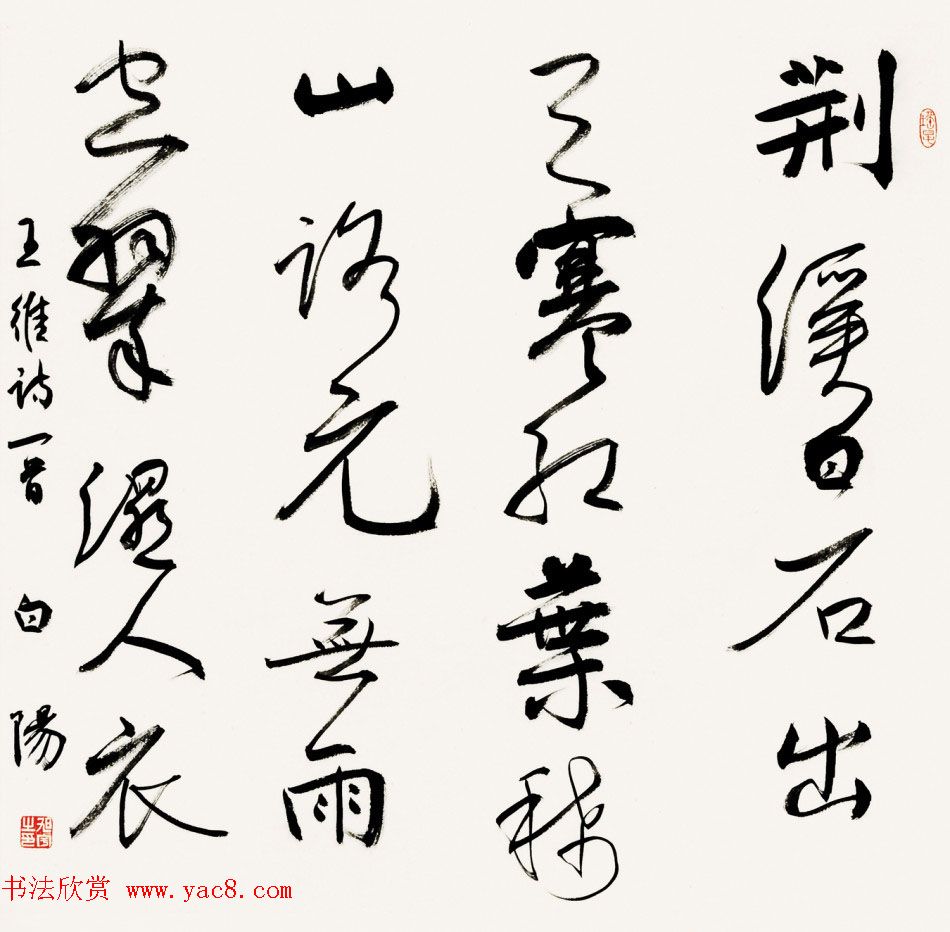 荆溪白石出
天寒红葉稀
山路元無雨
空翠濕人衣
王維诗一首 白陽
书法欣赏 www.yac8.com